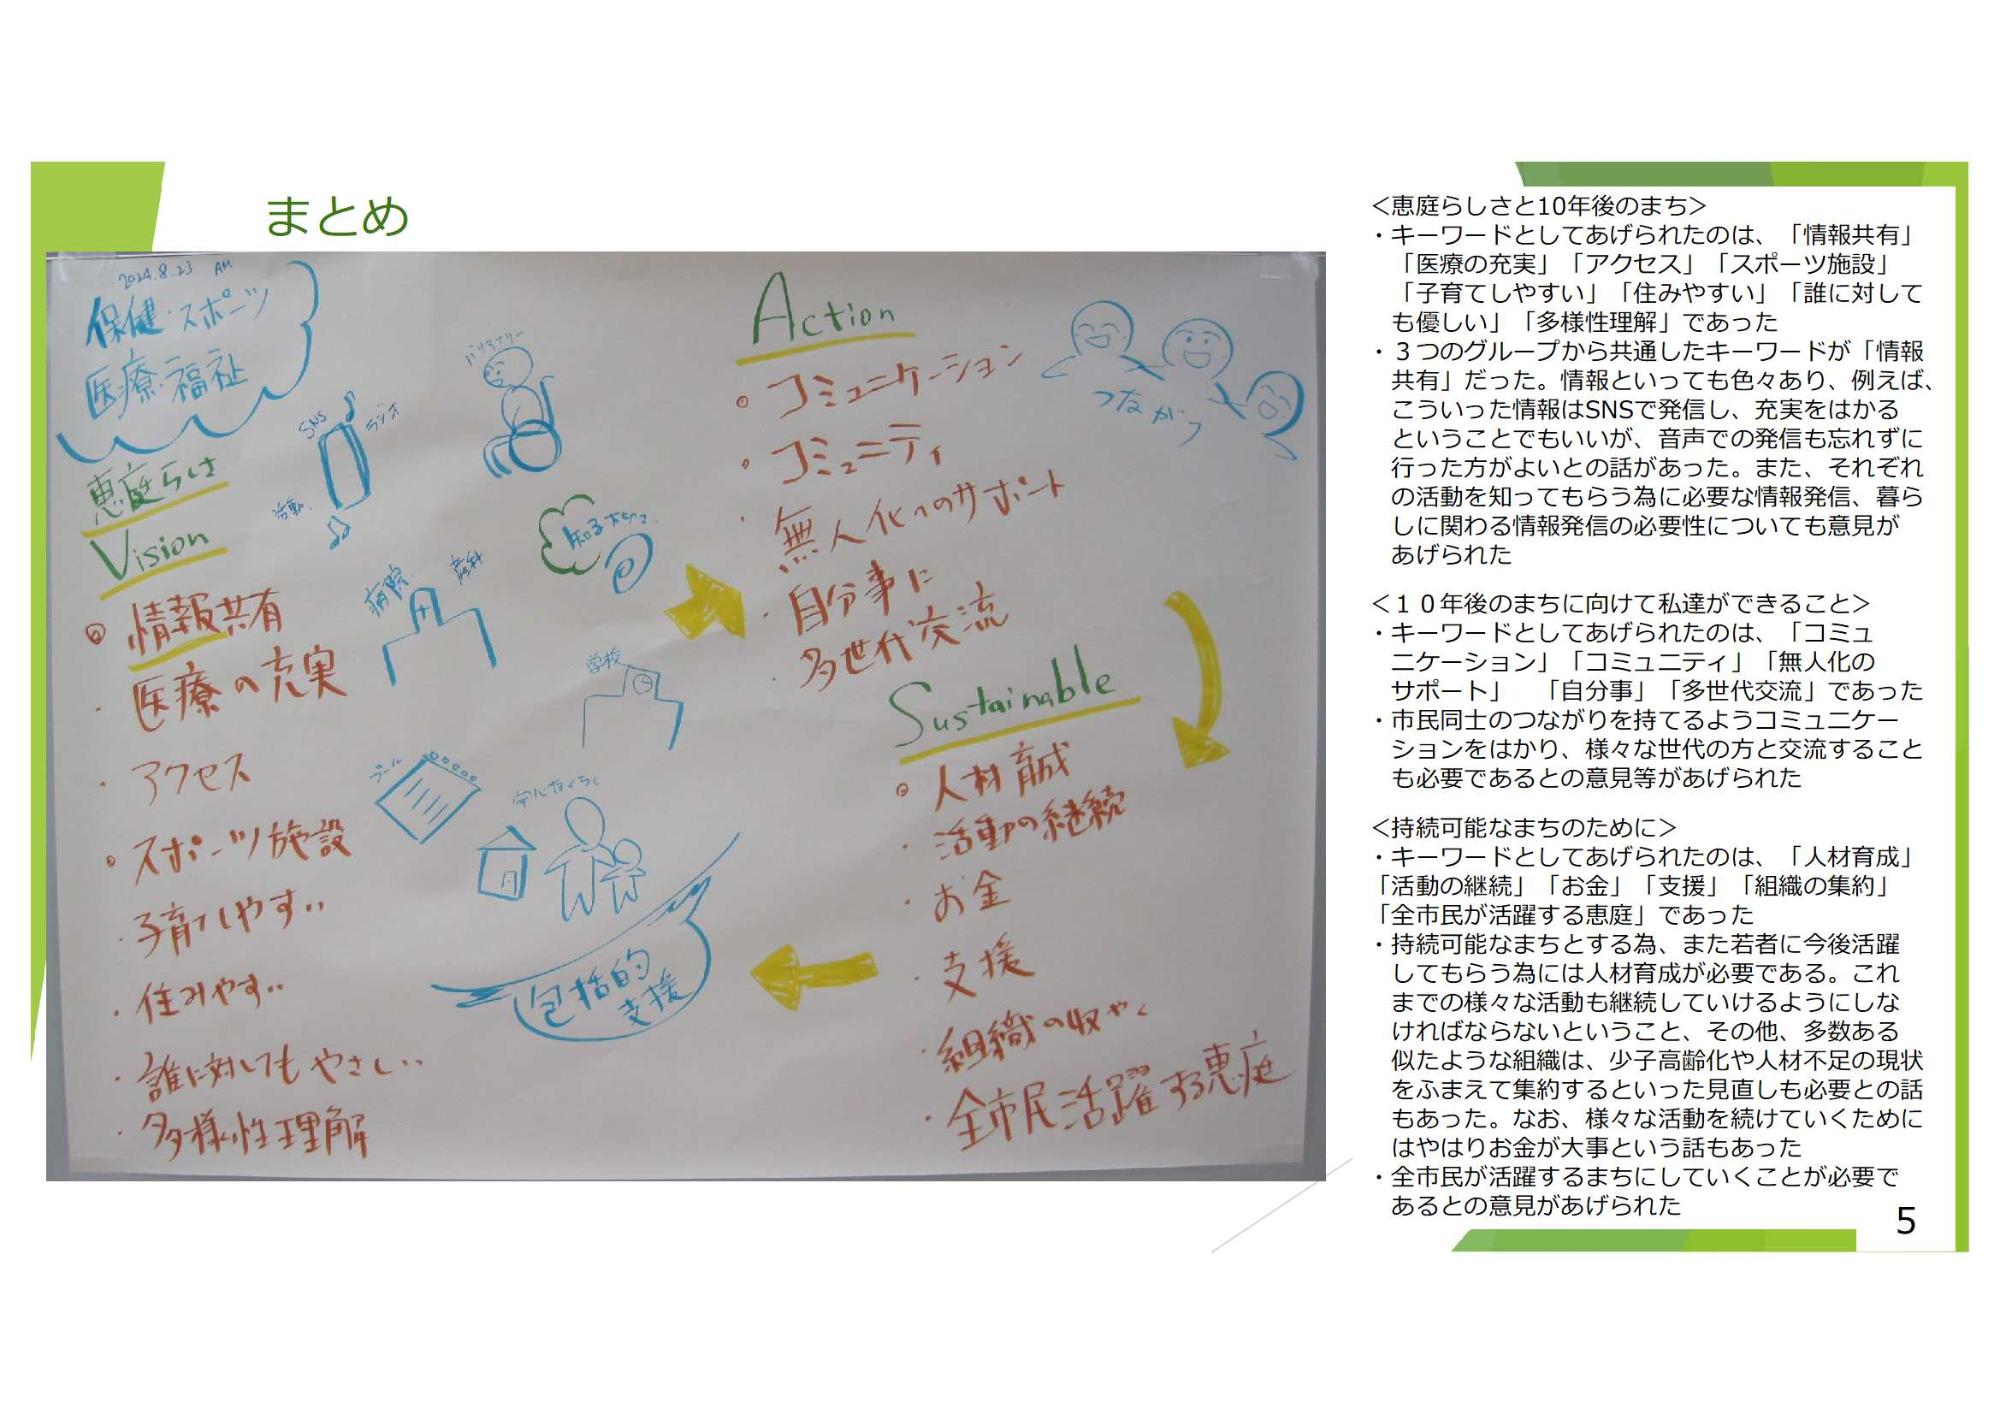 まとめ
2024.8.23 AM
保健・スポーツ
医療・福祉
恵庭らしさ
Vision
情報共有
・医療の充実
・アクセス
スポーツ施設
・子育てしやすい
・住みやすい
・誰に対してもやさしい
・多様性理解
SNS
ラジオ
活動
バリアフリー
病院
産科
知る
学校
プール
包括的
支援
Action
コミュニケーション
コミュニティ
・無人化へのサポート
・自分事に
・多世代交流
つながり
Sustainable
人材育成
・活動の継続
・お金
・支援
・組織の収やく
・全市民活躍する恵庭
＜恵庭らしさと10年後のまち＞
・キーワードとしてあげられたのは、「情報共有」
「医療の充実」「アクセス」「スポーツ施設」
「子育てしやすい」「住みやすい」「誰に対して
も優しい」「多様性理解」であった
・３つのグループから共通したキーワードが「情報
共有」だった。情報といっても色々あり、例えば、
こういった情報はSNSで発信し、充実をはかる
ということでもいいが、音声での発信も忘れずに
行った方がよいとの話があった。また、それぞれ
の活動を知ってもらう為に必要な情報発信、暮ら
しに関わる情報発信の必要性についても意見が
あげられた
＜１０年後のまちに向けて私達ができること＞
・キーワードとしてあげられたのは、「コミュ
ニケーション」「コミュニティ」「無人化の
サポート」　「自分事」「多世代交流」であった
・市民同士のつながりを持てるようコミュニケー
ションをはかり、様々な世代の方と交流すること
も必要であるとの意見等があげられた
＜持続可能なまちのために＞
・キーワードとしてあげられたのは、「人材育成」
「活動の継続」「お金」「支援」「組織の集約」
「全市民が活躍する恵庭」であった
・持続可能なまちとする為、また若者に今後活躍
してもらう為には人材育成が必要である。これ
までの様々な活動も継続していけるようにしな
ければならないということ、その他、多数ある
似たような組織は、少子高齢化や人材不足の現状
をふまえて集約するといった見直しも必要との話
もあった。なお、様々な活動を続けていくために
はやはりお金が大事という話もあった
・全市民が活躍するまちにしていくことが必要で
あるとの意見があげられた
5